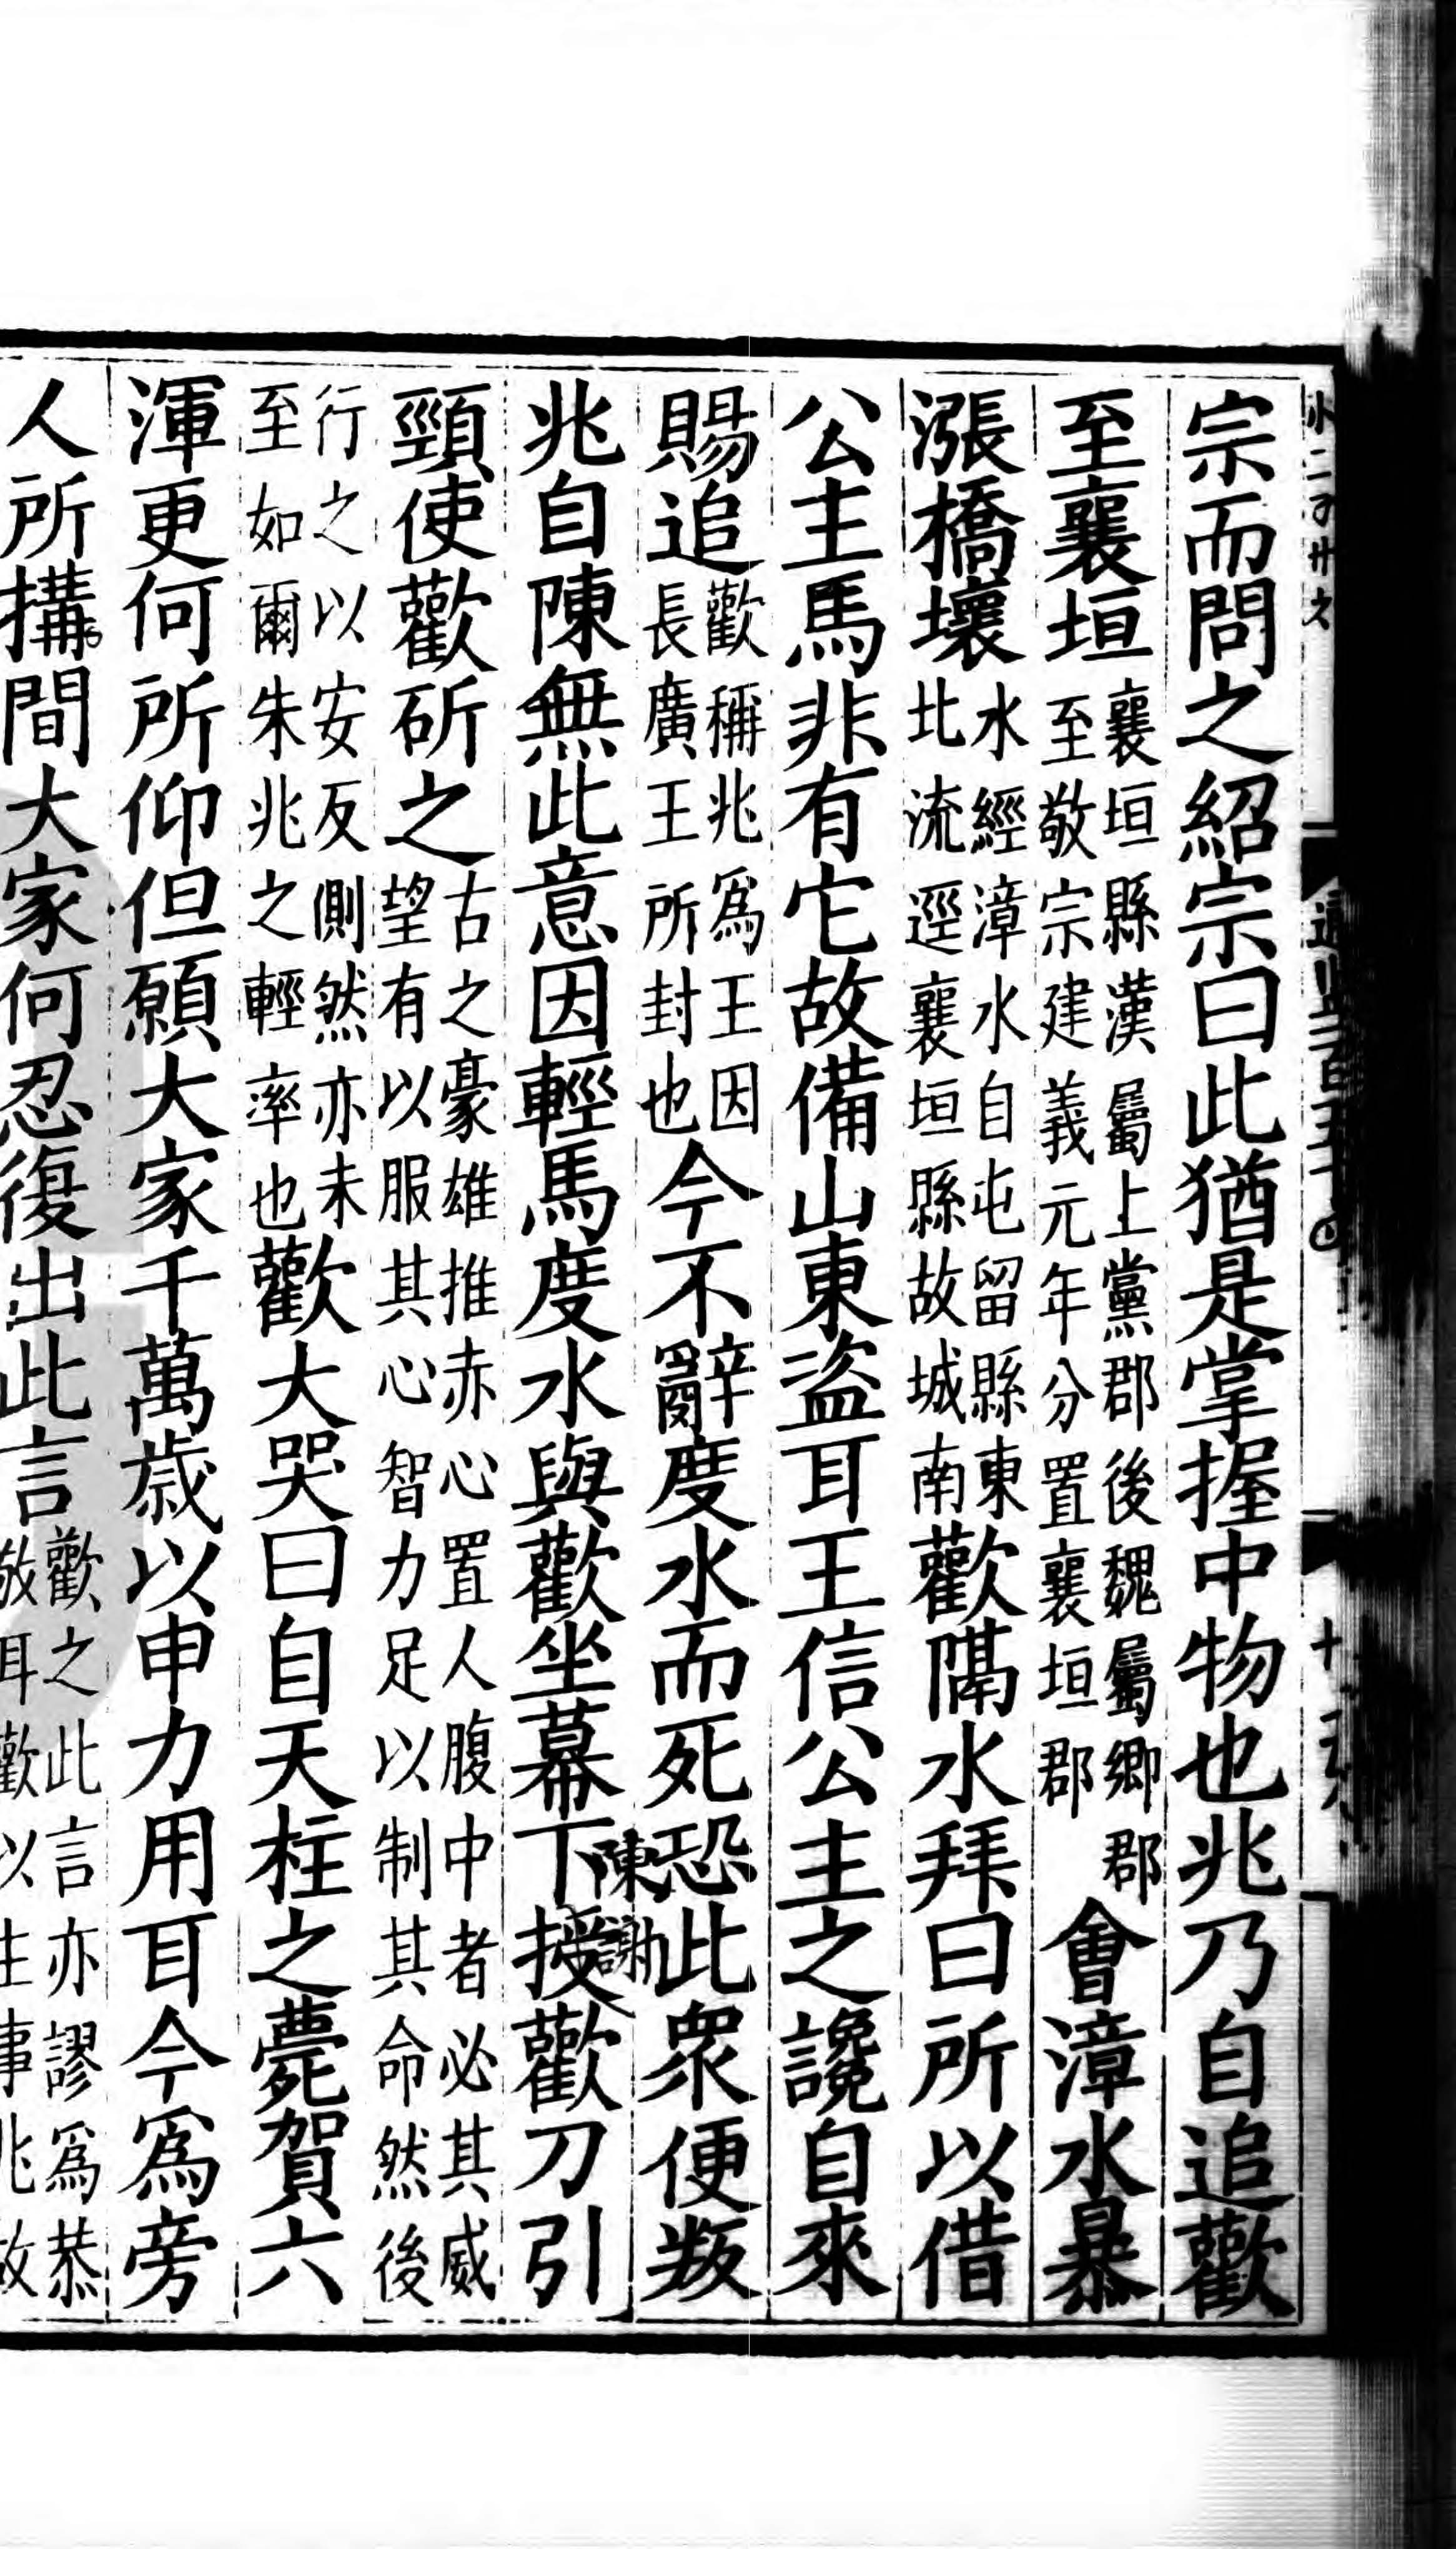 宗而問之紹宗曰此猶是掌握中物也兆乃自追歡
至襄垣襄垣縣漢屬上黨郡後魏屬鄉郡至敬宗建義元年分置襄垣郡會漳水暴
漲橋壞水經漳水自屯留縣東北流逕襄垣縣故城南歡隔水拜曰所以借
公主馬非有它故備山東盜耳王信公主之讒自來
賜追歡稱兆爲王因長廣王所封也今不辭度水而死恐此衆便叛
兆自陳無此意因輕馬度水與歡坐幕下陳謝授歡刀引
頸使歡斫之古之豪雄推赤心置人腹中者必其威望有以服其心智力足以制其命然後
行之以安反側然亦未至如爾朱兆之輕率也歡大哭曰自天柱之薨賀六
渾更何所仰但願大家千萬歲以申力用耳今爲旁
人所構間大家何忍復出此言歡之此言亦謬爲恭敬耳歡以 事兆故
通鑑一百五十